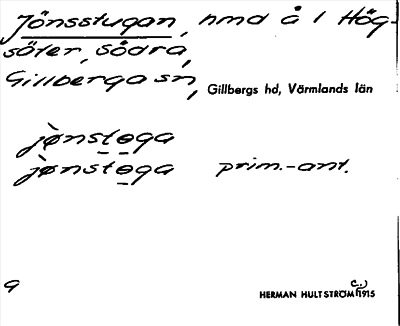 Jönsstugan, hmd å 1 Hög-
säter, Södra,
Gillberga sn, Gillbergs hd, Värmlands län
jònstɵga
jònstɵga prim.-ant.
9
HERMAN HULTSTRÖM 1915